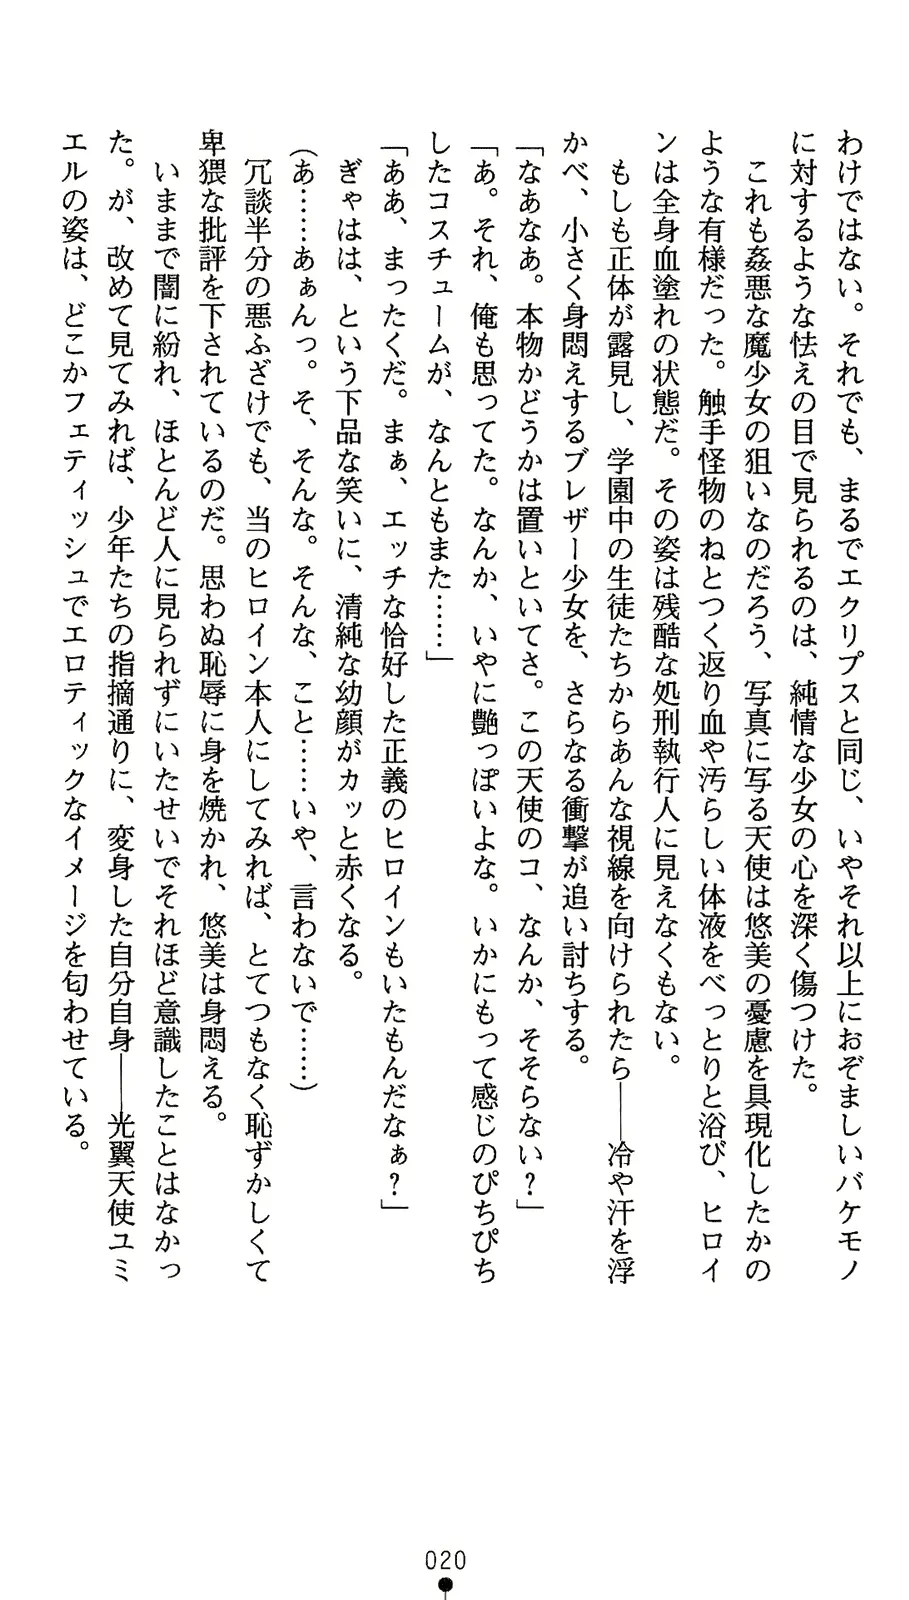 わけではない。それでも、まるでエクリプスと同じ、いやそれ以上におぞましいバケモノ
に対するような怯えの目で見られるのは、純情な少女の心を深く傷つけた。
これも姦悪な魔少女の狙いなのだろう、写真に写る天使は悠美の憂慮を具現化したかの
ような有様だった。触手怪物のねとつく返り血や汚らしい体液をべっとりと浴び、ヒロイ
ンは全身血塗れの状態だ。その姿は残酷な処刑執行人に見えなくもない。
もしも正体が露見し、学園中の生徒たちからあんな視線を向けられたら――冷や汗を浮
かべ、小さく身悶えするブレザー少女を、さらなる衝撃が追い討ちする。
「なあなあ。本物かどうかは置いといてさ。この天使のコ、なんか、そそらない?」
「あ。それ、俺も思ってた。なんか、いやに艶っぽいよな。いかにもって感じのぴちぴち
したコスチュームが、なんともまた……」
「ああ、まったくだ。まぁ、エッチな恰好した正義のヒロインもいたもんだなぁ?」
ぎゃはは、という下品な笑いに、清純な幼顔がカッと赤くなる。
(あ……あぁんっ。そ、そんな。そんな、こと……いや、言わないで……)
冗談半分の悪ふざけでも、当のヒロイン本人にしてみれば、とてつもなく恥ずかしくて
卑猥な批評を下されているのだ。思わぬ恥辱に身を焼かれ、悠美は身悶える。
いままで闇に紛れ、ほとんど人に見られずにいたせいでそれほど意識したことはなかっ
た。が、改めて見てみれば、少年たちの指摘通りに、変身した自分自身――光翼天使ユミ
エルの姿は、どこかフェティッシュでエロティックなイメージを匂わせている。
020